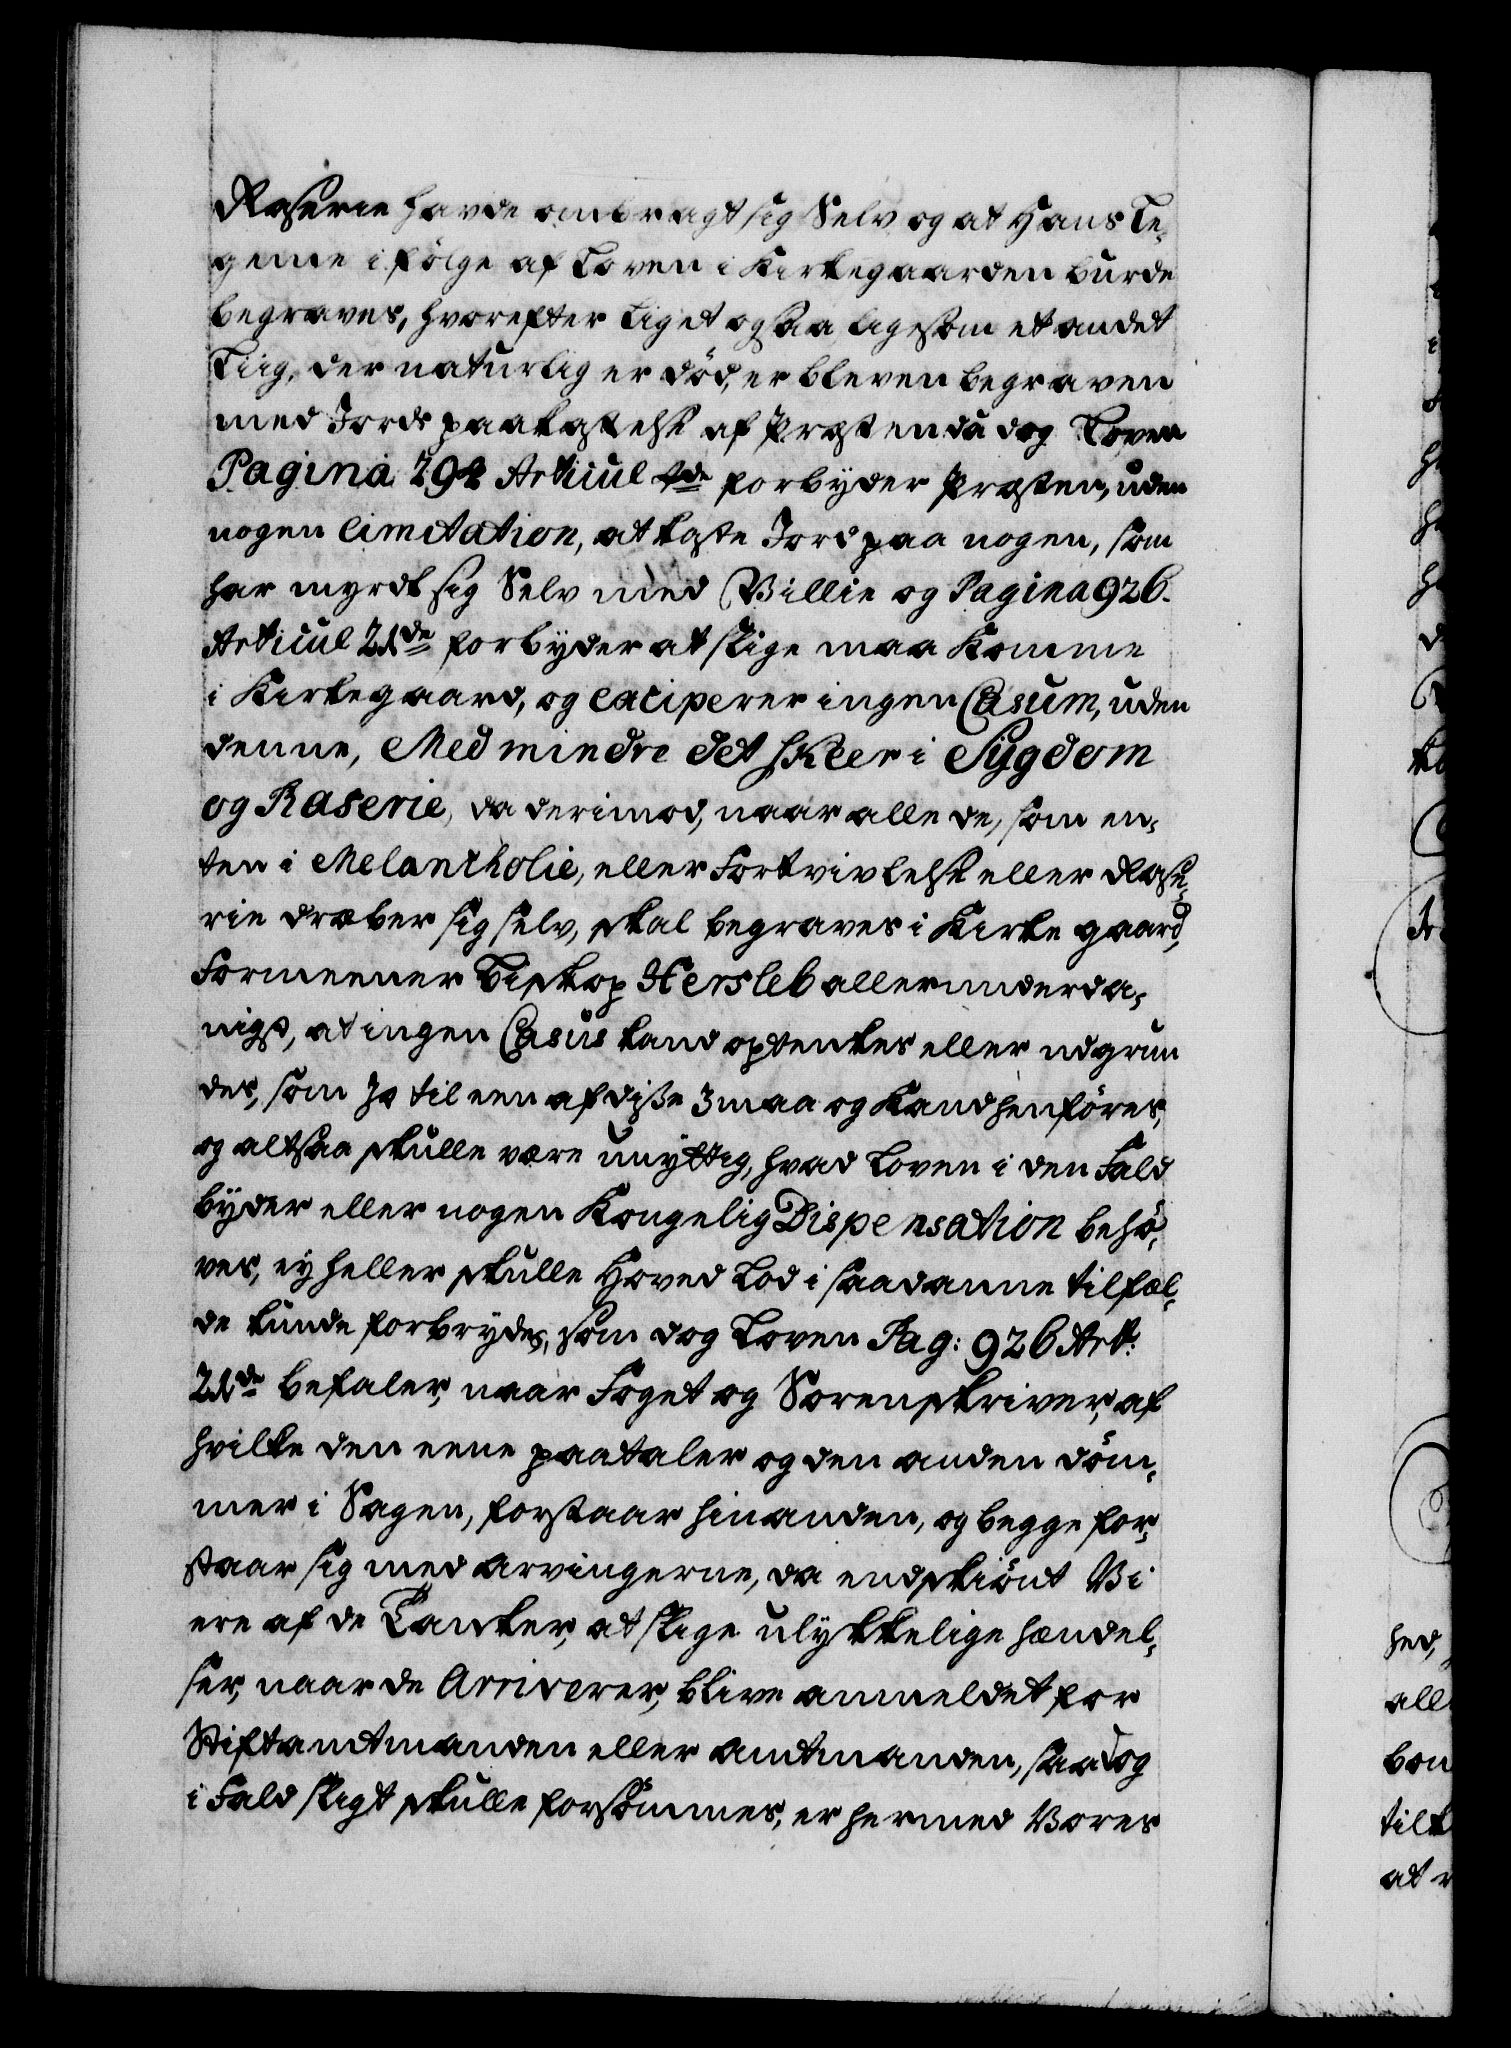 Raserie havde ombragt sig Selv og at Hans Le¬
geme i følge af Loven i Kirkegaarden burde
begraves, hvorefter Liget ogsaa ligesom et andet
Liig, der naturlig er död, er bleven begraven
med Jords paakastelse af Præsten da dog Loven
Pagina 292 Articul 4de forbyder Præsten, uden
nogen limitation, at kaste Jord paa nogen, som
har myrdt sig Selv med Villie og Pagina 926.
Articul 21de forbyder at slige maa Komme
i Kirkegaard, og exciperer ingen Casum, uden
denne, Med mindre det skeer i Sygdom
og Raserie, da derimod, naar alle de, som en¬
ten i Melancholie, eller Fortvivlelse eller Rase¬
rie dræber sig selv, skal begraves i Kirke gaard,
Formeener Biskop Hersleb allerunderda¬
nigst, at ingen Casus kand optenkes eller udgrun
des, som Jo til een af disse 3 maa og Kand henföres,
og altsaa skulle være unyttig, hvad Loven i den Fald
byder eller nogen Kongelig Dispensation behö¬
ves, ey heller skulle Hoved Lod i saadanne tilfæl¬
de kunde forbrydes, som dog Loven Pag: 926 Art:
21de befaler, naar Foget og Sorenskriver, af
hvilke den eene paataler og den anden döm¬
mer i Sagen, forstaar hinanden, og begge for¬
staar sig med Arvingerne, da endskiönt Vi
ere af de Tanker, at slige ulykkelige hændel¬
ser, naar de Arriverer, blive anmeldet for
Stiftamtmanden eller Amtmanden, saa dog
i Fald sligt skulle forsömmes, er hermed Vores